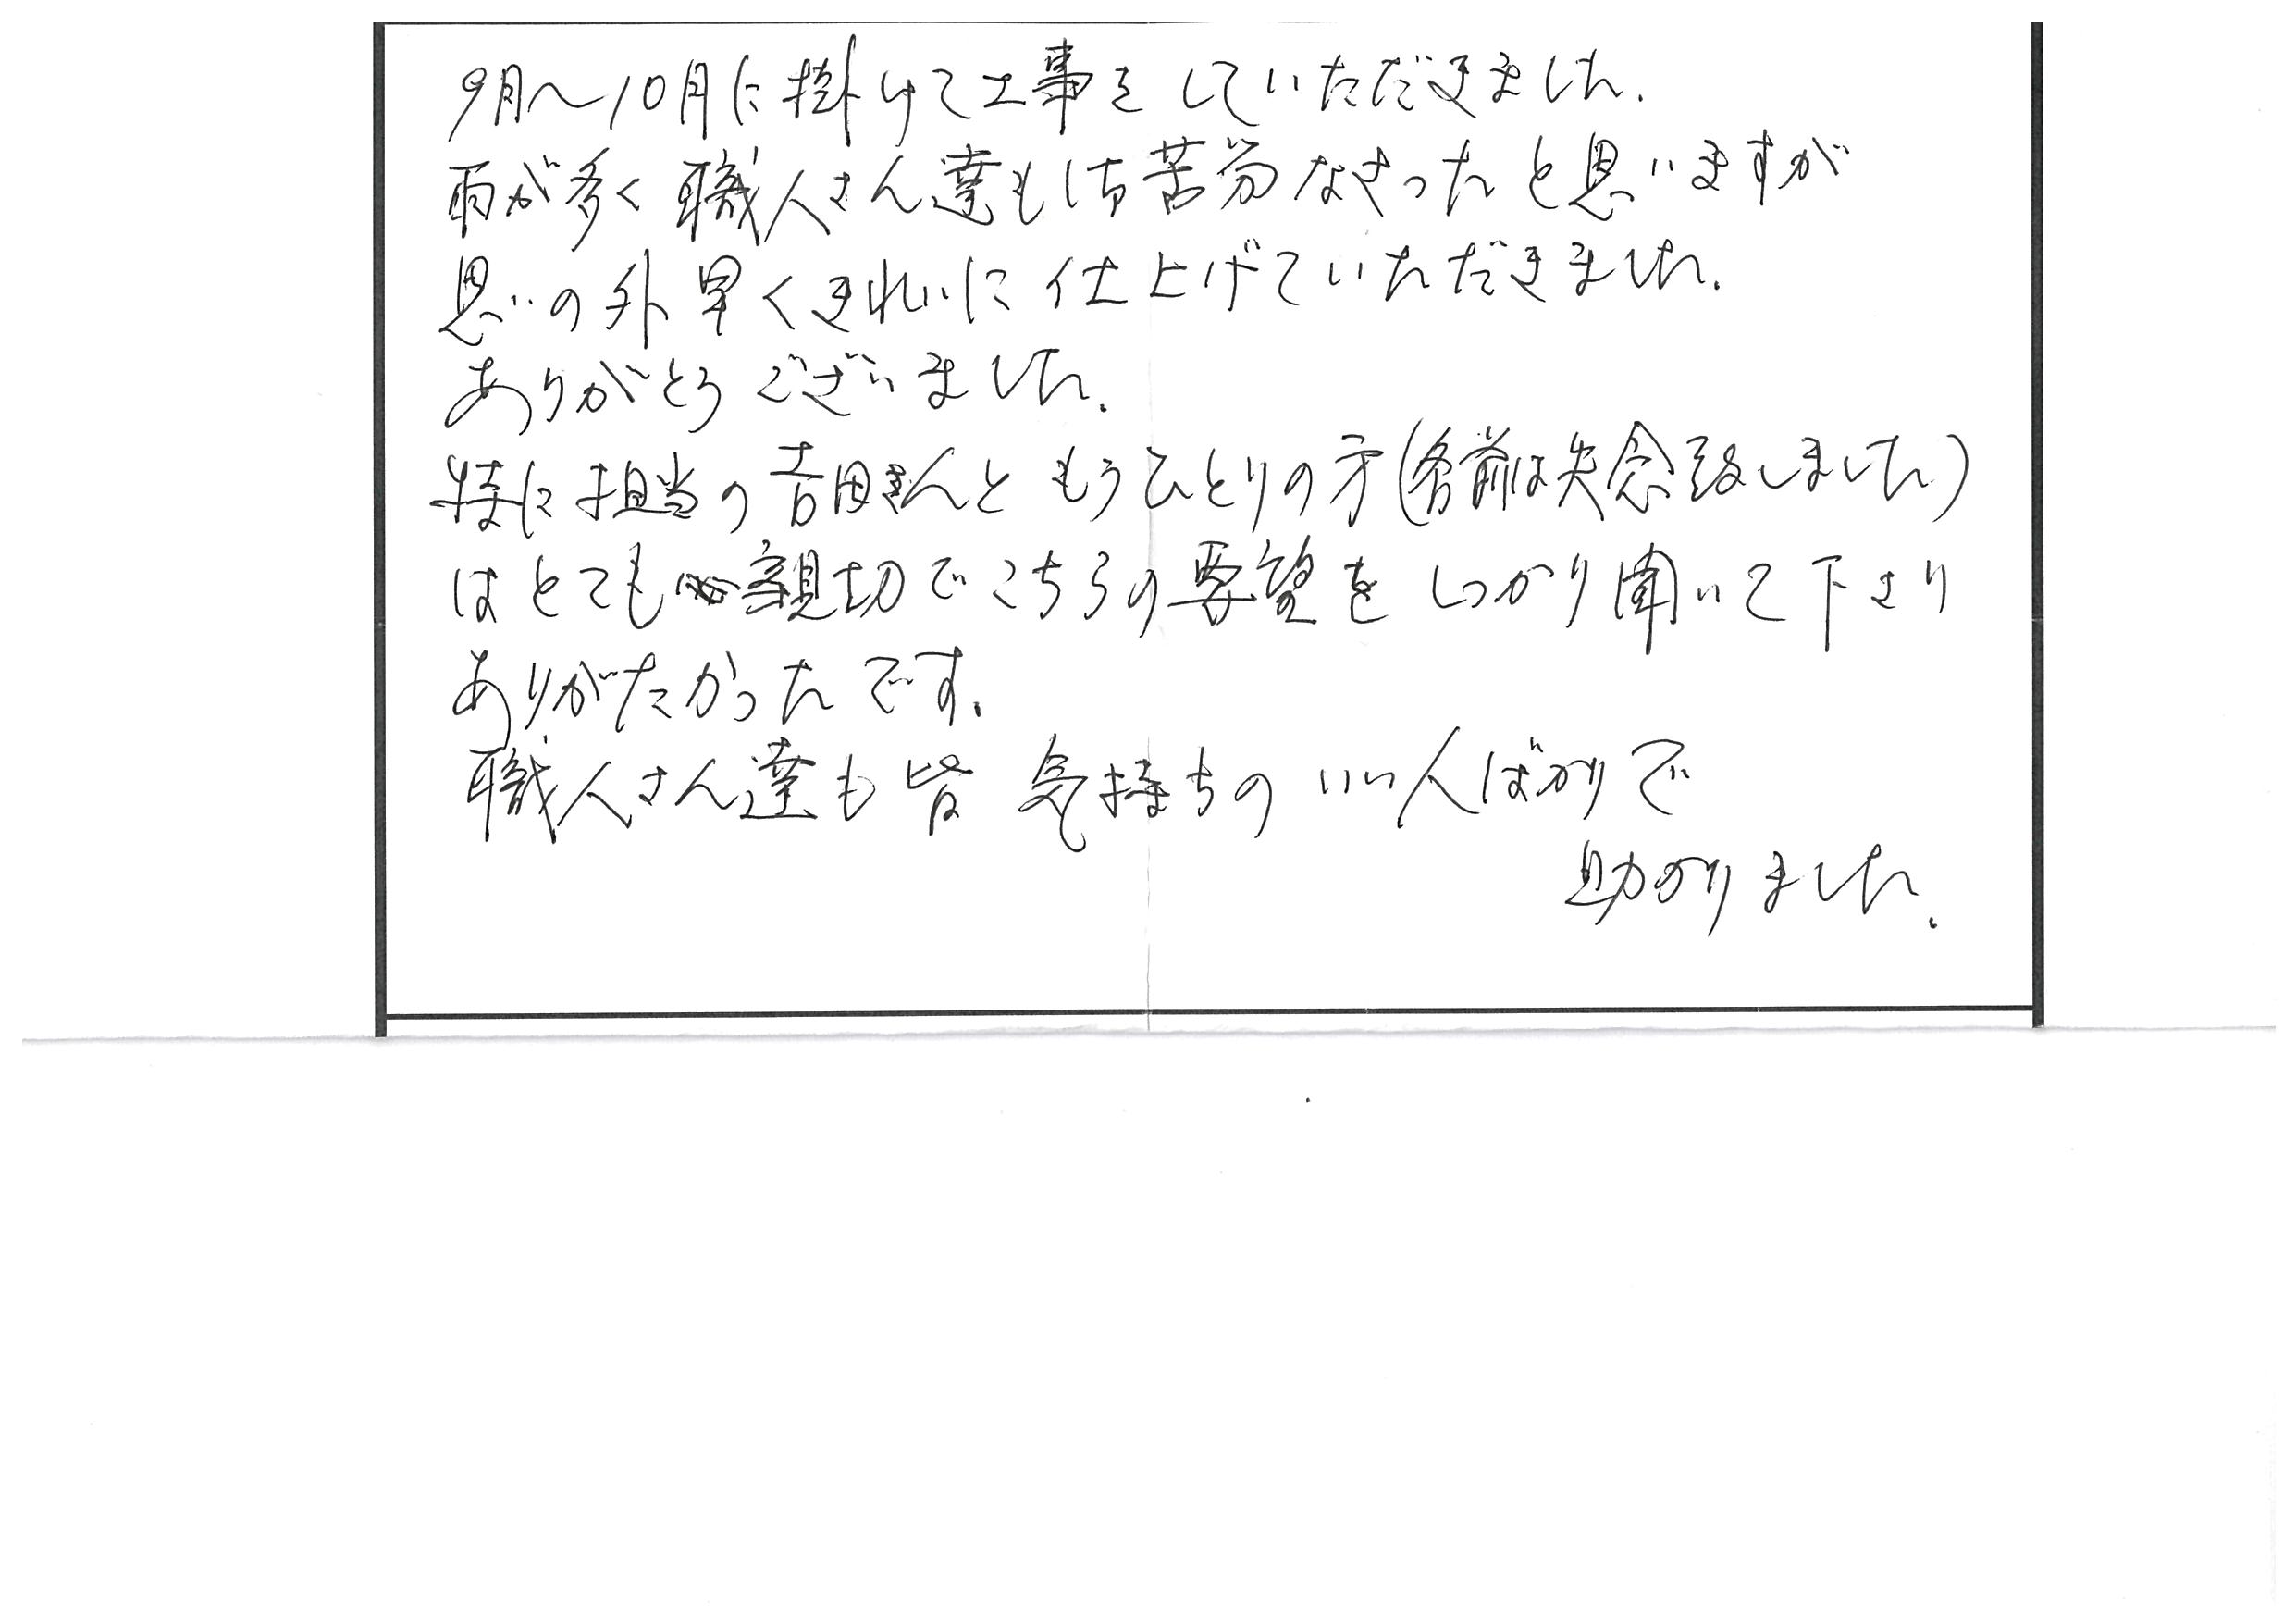 9月〜10月に掛けて工事をしていただきました.
雨が多く職人さん達も御苦労なさったと思いますが
思いの外早くきれいに仕上げていただきました.
ありがとうございました.
特に担当の吉田さんともうひとりの方(名前は失念致しました)
はとても親切でこちらの要望をしっかり聞いて下さり
ありがたかったです.
職人さん達も皆気持ちのいい人ばかりで
助かりました.